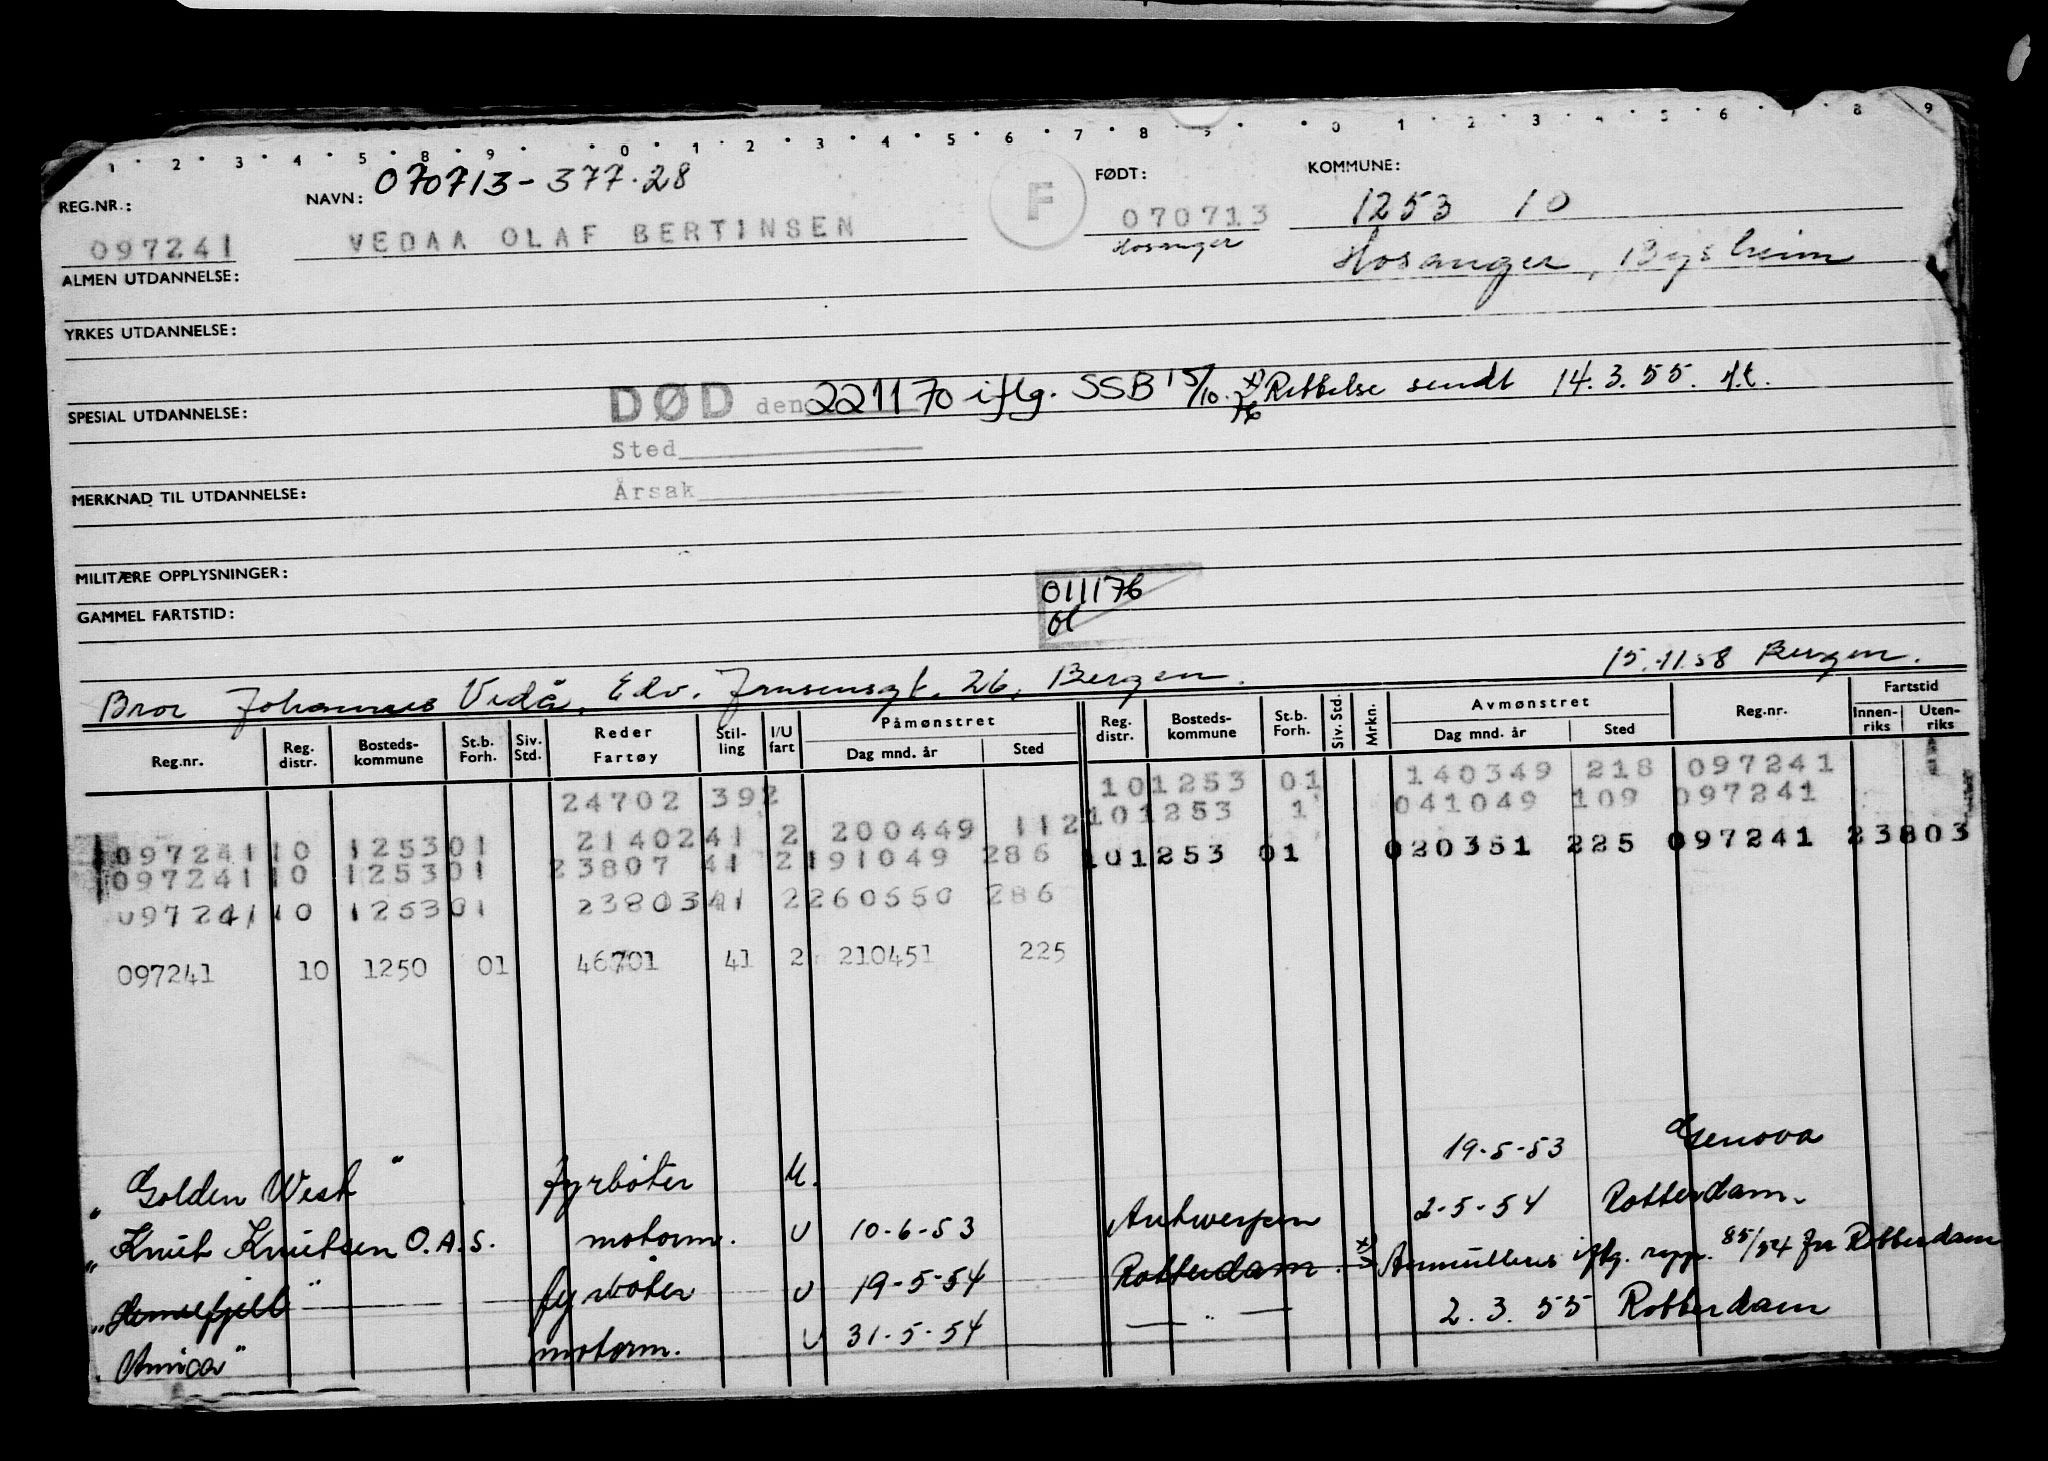 1 · 2 · 3 · 4 · 5 · 8 · 9 · 0 · 1 · 2 · 3 · 4 · 5 · 6 · 7 · 8 · 0 · 1 · 2 · 3 · 4 · 5 · 6 · 7 · 8 9
REG.NR.: NAVN: 070713-377.28 F FØDT: KOMMUNE:
097241 VEDAA OLAF BERTINSEN 070713 1253 10
Hosanger Hosanger, Bysheim
ALMEN UTDANNELSE:
YRKES UTDANNELSE:
SPESIAL UTDANNELSE: DØD den 221170 iflg. SSB 15/10.76 x) Rettelse sendt 14.3.55.
Sted
MERKNAD TIL UTDANNELSE: Årsak
MILITÆRE OPPLYSNINGER:
011176
GAMMEL FARTSTID:
15.11.58 Bergen.
Bror Johannes Vedå, Edv. Jansensgt. 26, Bergen.
Reg.nr. Reg. distr. Bosteds-kommune St.b. Forh. Siv. Std. Reder Fartøy Stil-ling I/U fart Påmønstret Dag mnd. år Sted Reg. distr. Bosteds-kommune St.b. Forh. Siv. Std. Mrkn. Avmønstret Dag mnd. år Sted Reg.nr. Fartstid Innen-riks Uten-riks
24702 392 101253 01 140349 218 097241
097241 10 1253 01 21402 41 2 200449 112 101253 1 041049 109 097241
097241 10 1253 01 23807 41 2 191049 286 101253 01 020351 225 097241 23803
097241 10 1253 01 23803 41 2 260550 286
097241 10 1250 01 46701 41 2 210451 225
"Golden West" fyrbøter U. 19-5-53 Genova
"Knut Knutsen O.A.S. motorm. U 10-6-53 Antwerpen 2-5-54 Rotterdam.
"Hemsefjell" fyrbøter U 19-5-54 Rotterdam. x) Annulleres iflg. rapp. 85/54 fra Rotterdam
"Unica" motorm. U 31-5-54 — " — 2.3.55 Rotterdam